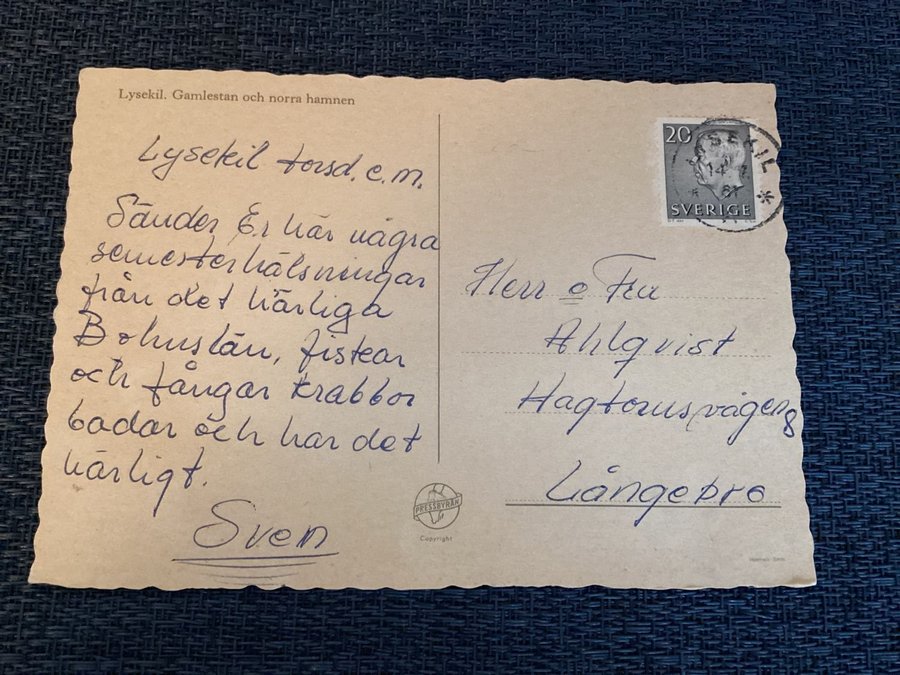 Lysekil. Gamlestan och norra hamnen
Lysekil torsd. e.m.
Sänder Er här några
semesterhälsningar
från det härliga
Bohuslän, fiskar
och fångar krabbor
badar och har det
härligt.
Sven
20
SVERIGE
LYSEKIL
Herr o Fru
Ahlqvist
Hagtornsvägen 8
Långebro
PRESSBYRÅN
Copyright